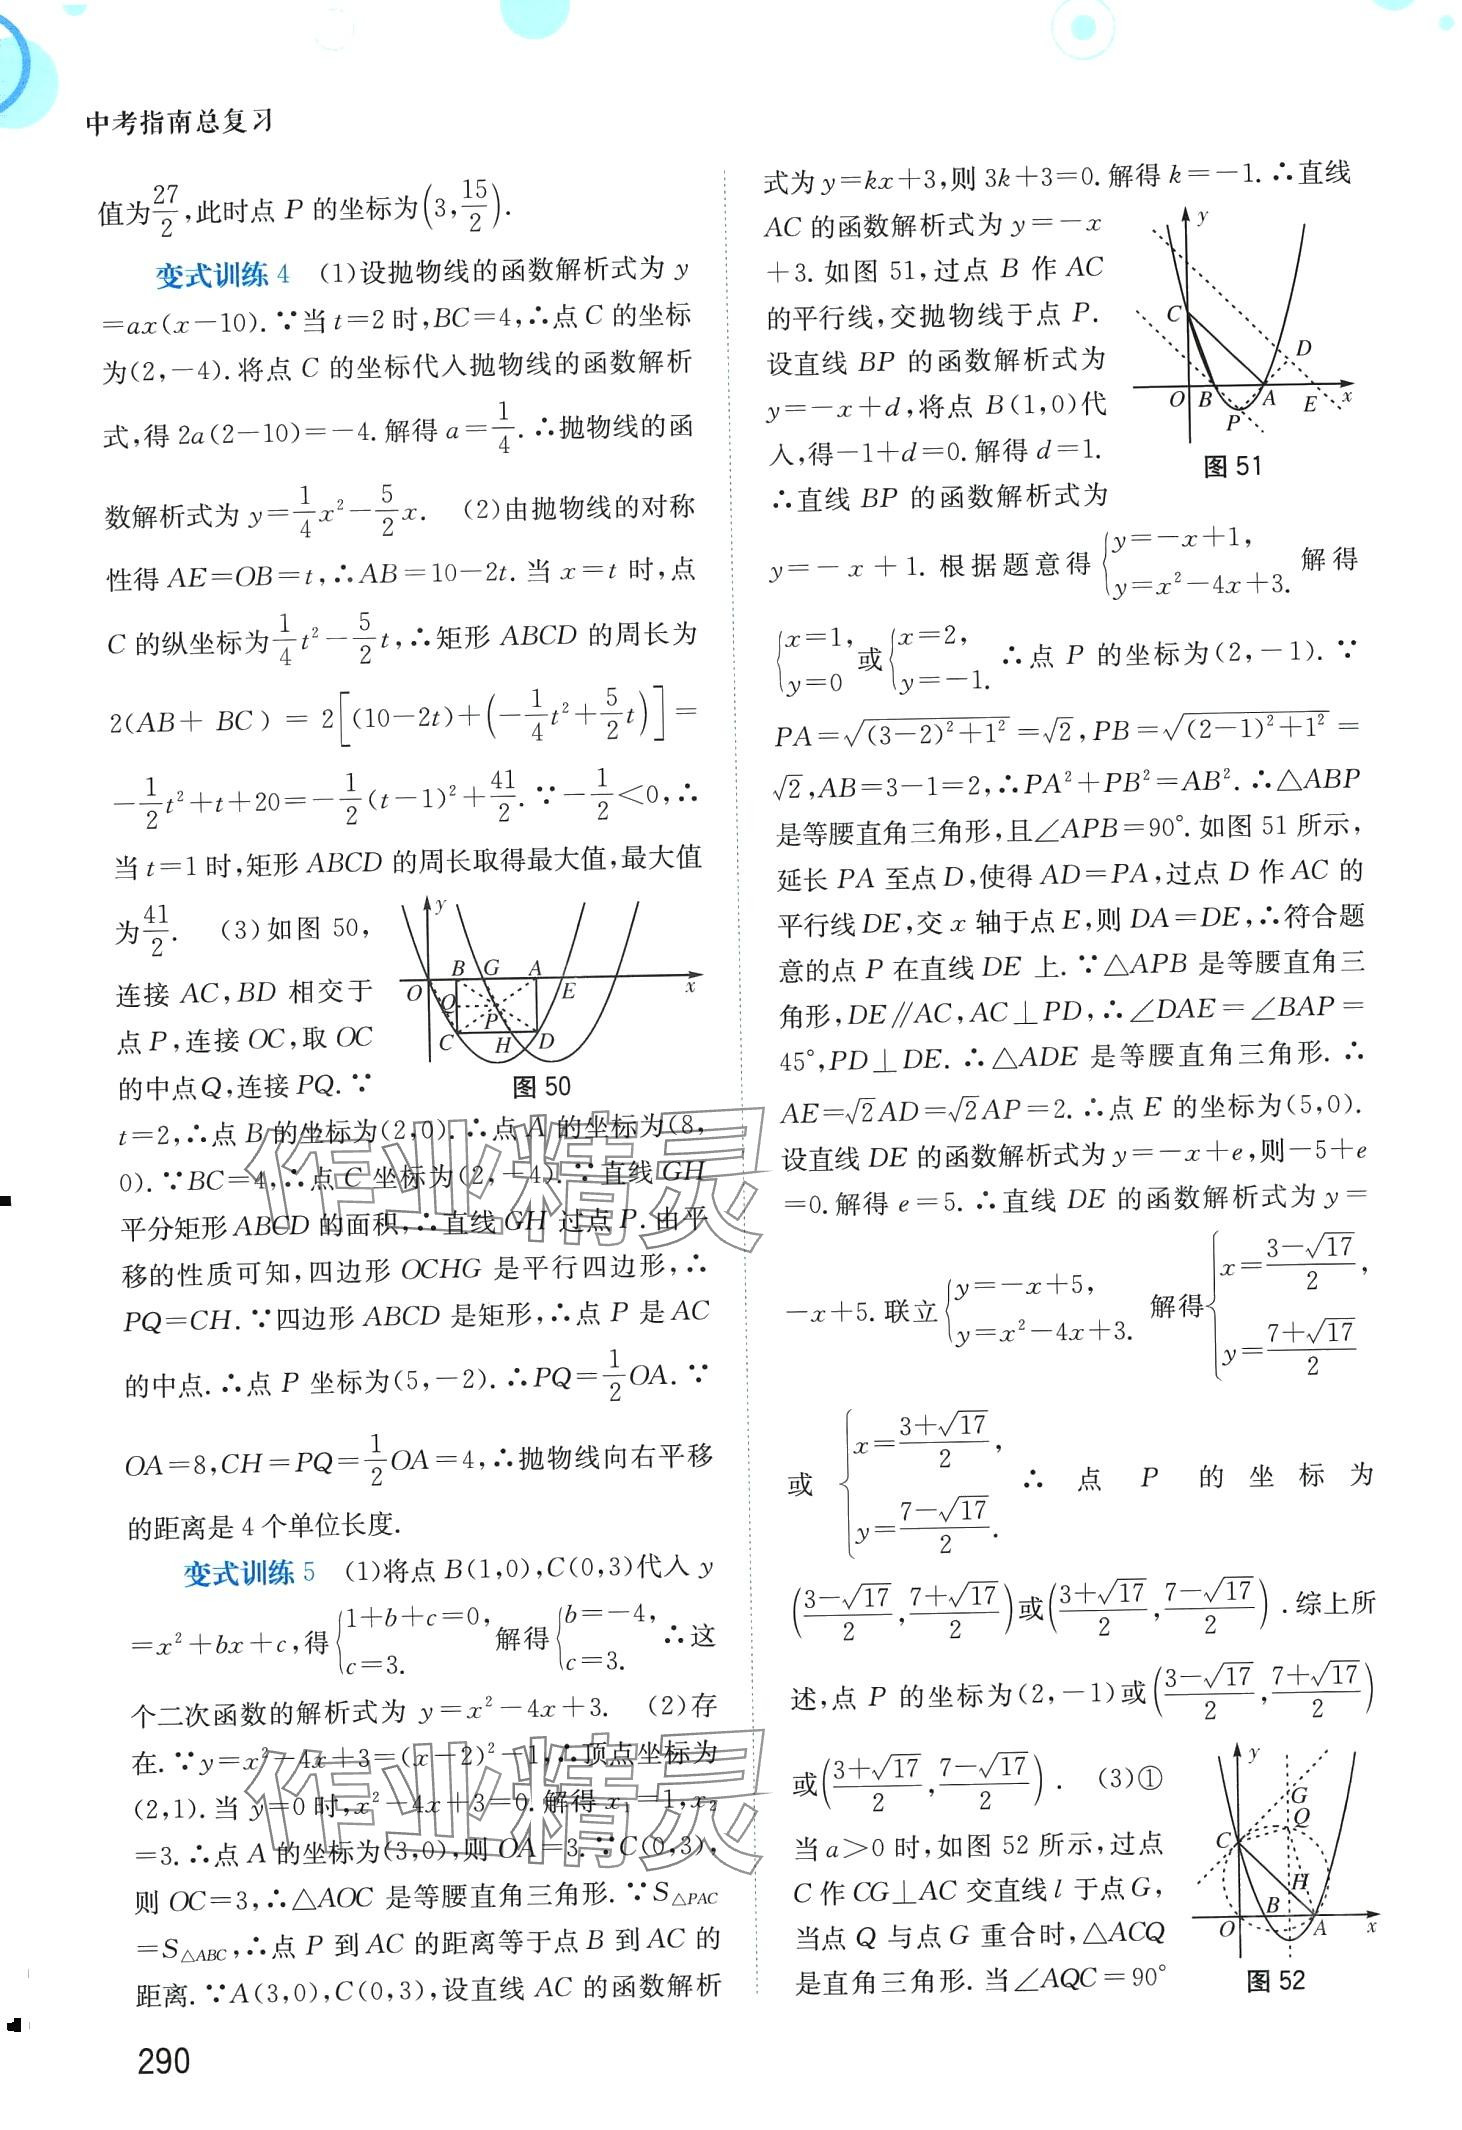 中考指南总复习
值为27/2,此时点 P 的坐标为(3,15/2).
变式训练 4 (1)设抛物线的函数解析式为 y
=ax(x-10). ∵当 t=2 时,BC=4,∴点 C 的坐标
为(2,-4). 将点 C 的坐标代入抛物线的函数解析
式,得 2a(2-10)=-4. 解得 a=1/4. ∴抛物线的函
数解析式为 y=1/4x²-5/2x. (2)由抛物线的对称
性得 AE=OB=t,∴AB=10-2t. 当 x=t 时,点
C 的纵坐标为1/4t²-5/2t,∴矩形 ABCD 的周长为
2(AB+ BC) = 2[(10-2t)+(-1/4t²+5/2t)]=
-1/2t²+t+20=-1/2(t-1)²+41/2. ∵-1/2<0,∴
当 t=1 时,矩形 ABCD 的周长取得最大值,最大值
为41/2. (3)如图 50,
连接 AC,BD 相交于
点 P,连接 OC,取 OC
的中点Q,连接 PQ. ∵
y
B G A
O E x
Q
P
C H D
图 50
t=2,∴点 B 的坐标为(2,0). ∴点 A 的坐标为(8,
0). ∵BC=4,∴点 C 坐标为(2,-4). ∵直线 GH
平分矩形 ABCD 的面积,∴直线 GH 过点 P. 由平
移的性质可知,四边形 OCHG 是平行四边形,∴
PQ=CH. ∵四边形 ABCD 是矩形,∴点 P 是 AC
的中点. ∴点 P 坐标为(5,-2). ∴PQ=1/2OA. ∵
OA=8,CH=PQ=1/2OA=4,∴抛物线向右平移
的距离是 4 个单位长度.
变式训练 5 (1)将点 B(1,0),C(0,3)代入 y
=x²+bx+c,得{1+b+c=0, c=3. 解得{b=-4, c=3. ∴这
个二次函数的解析式为 y=x²-4x+3. (2)存
在. ∵y=x²-4x+3=(x-2)²-1,∴顶点坐标为
(2,1). 当 y=0 时,x²-4x+3=0. 解得 x₁=1,x₂
=3. ∴点 A 的坐标为(3,0),则 OA=3. ∵C(0,3),
则 OC=3,∴△AOC 是等腰直角三角形. ∵S△PAC
=S△ABC,∴点 P 到 AC 的距离等于点 B 到 AC 的
距离. ∵A(3,0),C(0,3),设直线 AC 的函数解析
式为 y=kx+3,则 3k+3=0. 解得 k=-1. ∴直线
AC 的函数解析式为 y=-x
+3. 如图 51,过点 B 作 AC
的平行线,交抛物线于点 P.
设直线 BP 的函数解析式为
y=-x+d,将点 B(1,0)代
入,得-1+d=0. 解得 d=1.
∴直线 BP 的函数解析式为
y
C
D
O B A E x
P
图 51
y=-x+1. 根据题意得{y=-x+1, y=x²-4x+3. 解得
{x=1, y=0 或{x=2, y=-1. ∴点 P 的坐标为(2,-1). ∵
PA=√((3-2)²+1²)=√2,PB=√((2-1)²+1²)=
√2,AB=3-1=2,∴PA²+PB²=AB². ∴△ABP
是等腰直角三角形,且∠APB=90°. 如图 51 所示,
延长 PA 至点 D,使得 AD=PA,过点 D 作 AC 的
平行线 DE,交 x 轴于点 E,则 DA=DE,∴符合题
意的点 P 在直线 DE 上. ∵△APB 是等腰直角三
角形,DE∥AC,AC⊥PD,∴∠DAE=∠BAP=
45°,PD⊥DE. ∴△ADE 是等腰直角三角形. ∴
AE=√2AD=√2AP=2. ∴点 E 的坐标为(5,0).
设直线 DE 的函数解析式为 y=-x+e,则-5+e
=0. 解得 e=5. ∴直线 DE 的函数解析式为 y=
-x+5. 联立{y=-x+5, y=x²-4x+3. 解得{x=(3-√17)/2, y=(7+√17)/2
或{x=(3+√17)/2, y=(7-√17)/2. ∴点 P 的坐标为
((3-√17)/2,(7+√17)/2)或((3+√17)/2,(7-√17)/2). 综上所
述,点 P 的坐标为(2,-1)或((3-√17)/2,(7+√17)/2)
或((3+√17)/2,(7-√17)/2). (3)①
当 a>0 时,如图 52 所示,过点
C 作 CG⊥AC 交直线 l 于点 G,
当点 Q 与点 G 重合时,△ACQ
是直角三角形. 当∠AQC=90°
y
G
Q
C
H
B
O A x
图 52
290
作业精灵
作业精灵